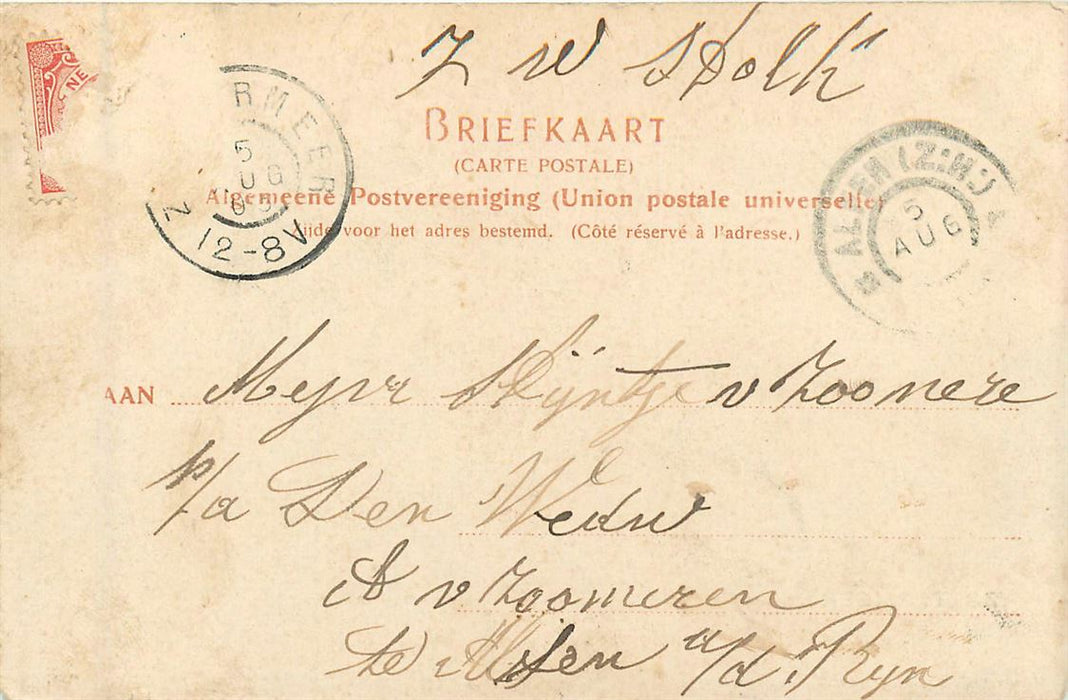 Z W Stolk
NE
RMEER
5
UG
12-8V
BRIEFKAART
(CARTE POSTALE)
Algemeene Postvereeniging (Union postale universelle)
Zijde voor het adres bestemd. (Côté réservé à l'adresse.)
ALFEN (Z:H:)
5
AUG
AAN Mejvr Stijntje v Zoomere
p/a Den Wedw
A v Zoomeren
te Alfen a/d. Ryn